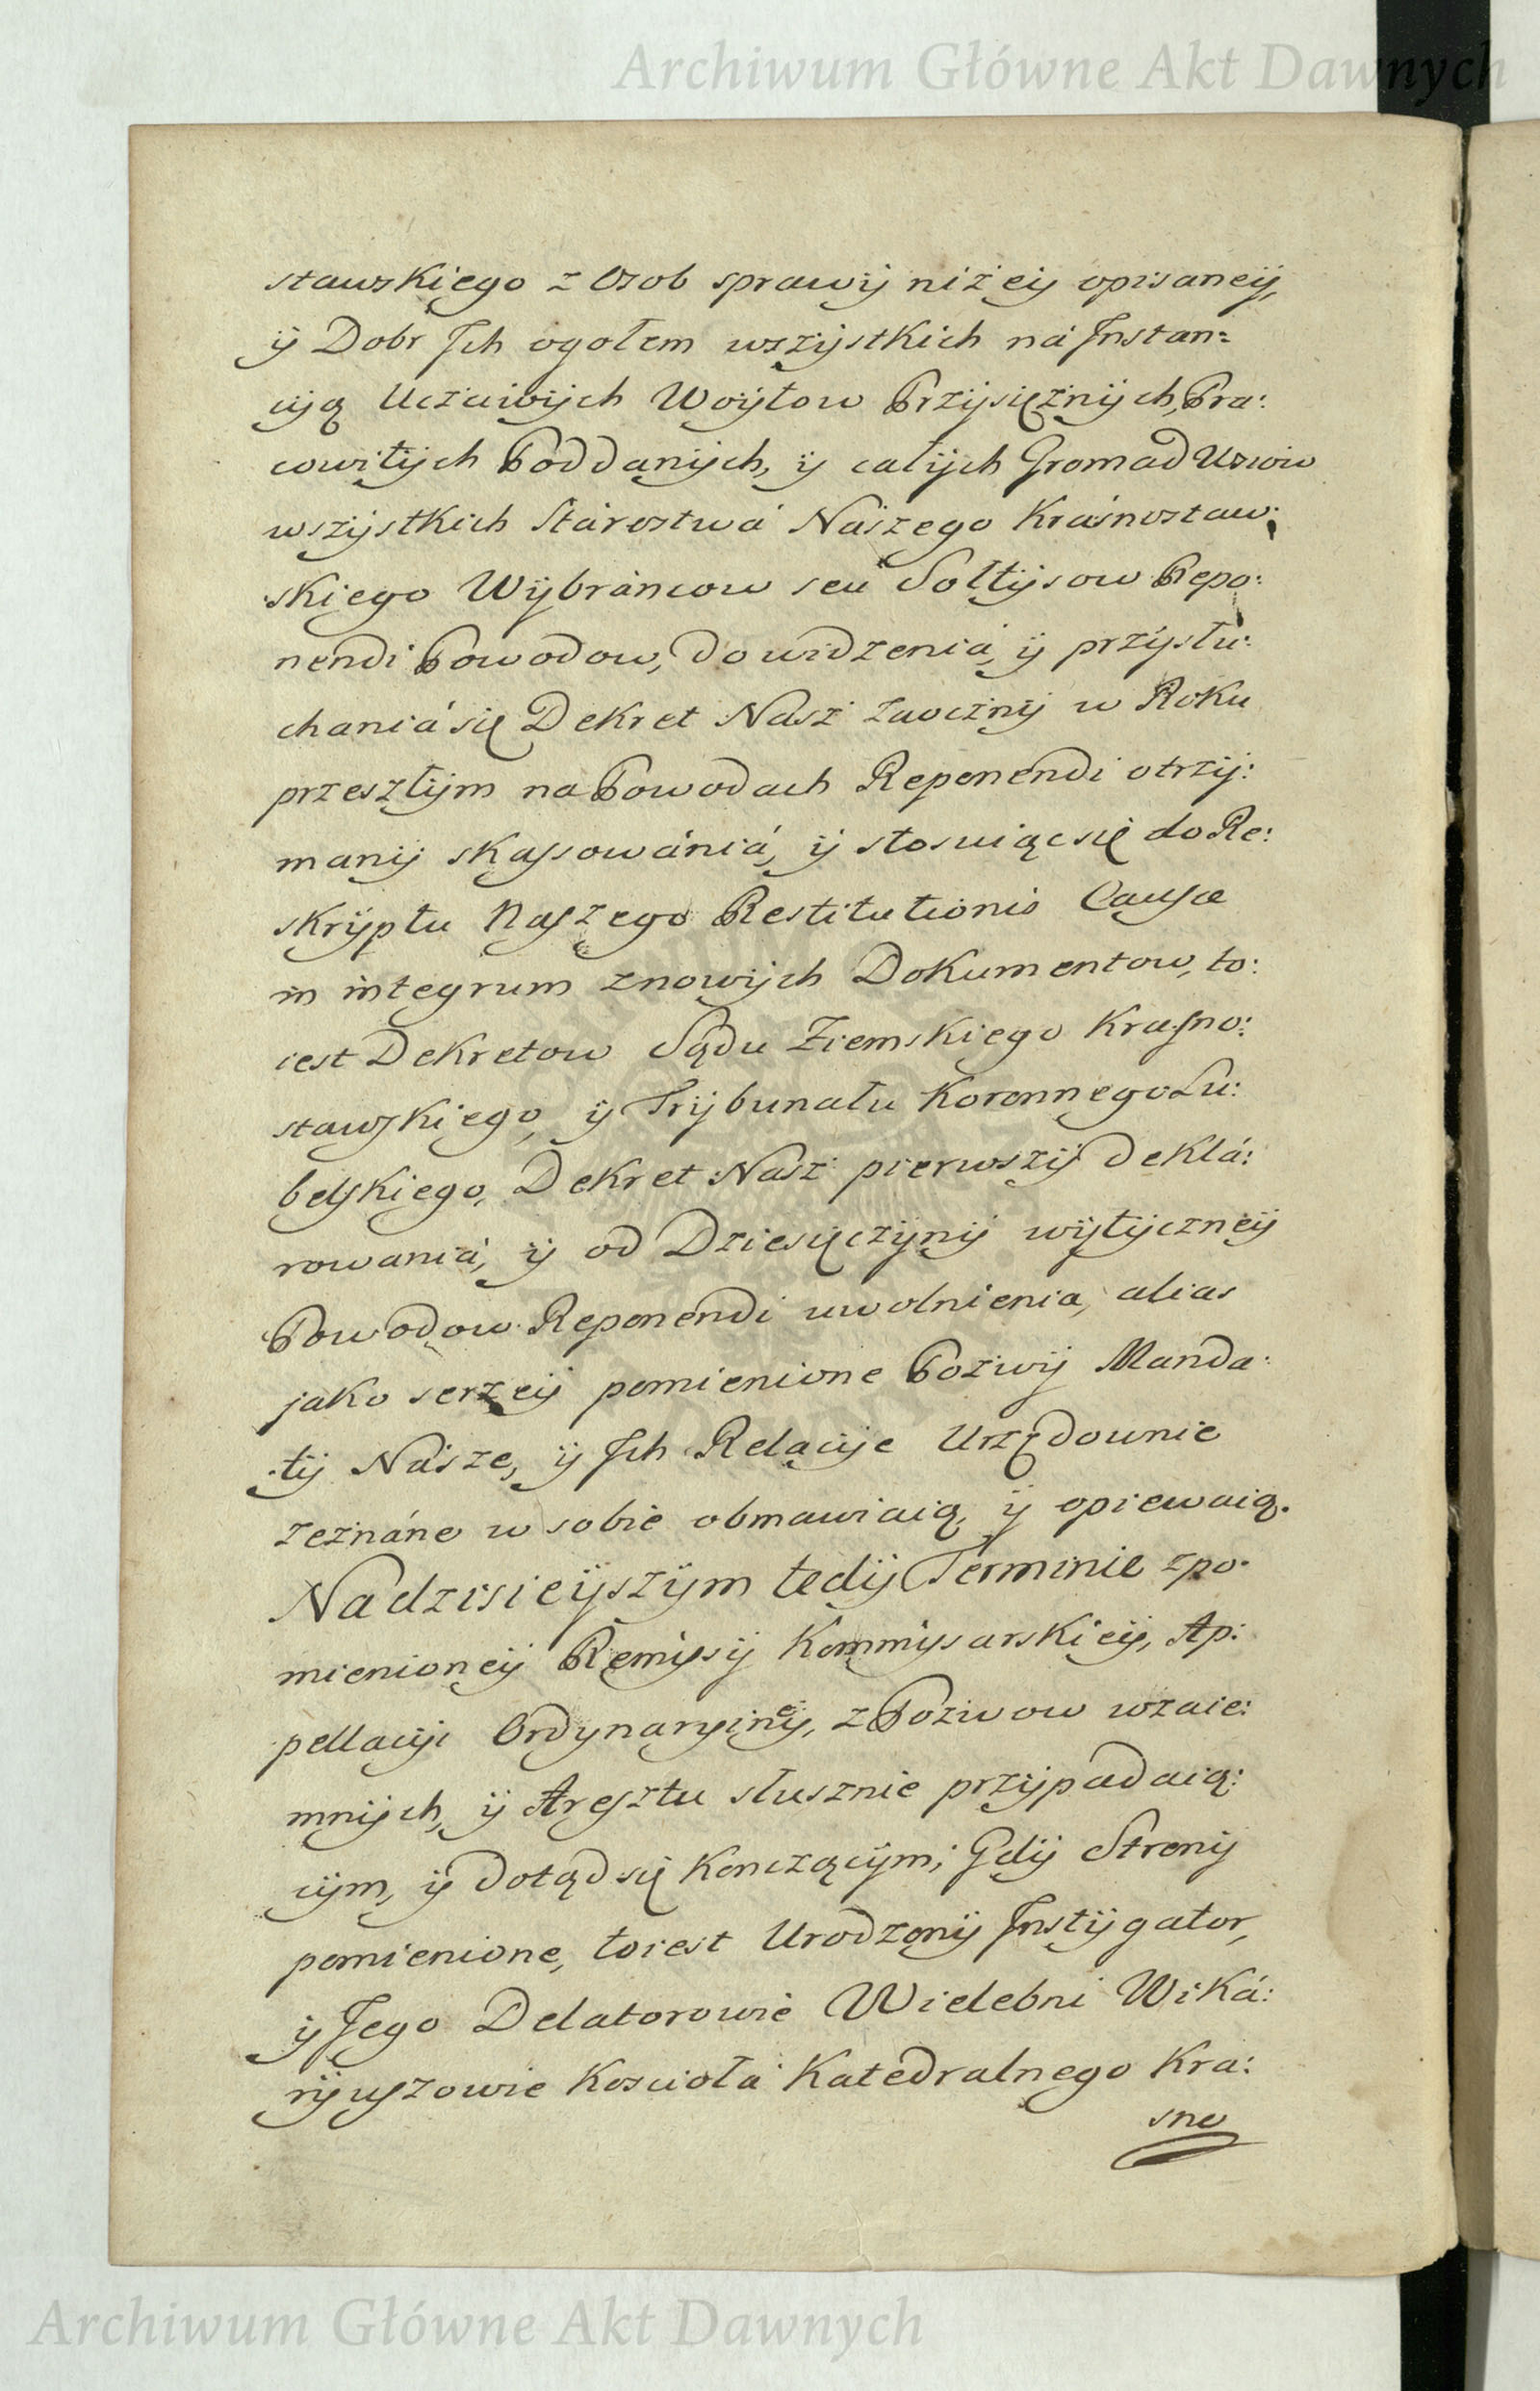 Archiwum Główne Akt Dawnych
stawskiego z Osob sprawÿ niżeÿ opisaneÿ,
ÿ Dobr Jch ogołem wszÿstkich ná Jnstan=
cÿą Uczciwÿch Woÿtow Przÿsiężnÿch, Pra:
cowitÿch Poddanÿch, ÿ całÿch Gromad Wsiow
wszÿstkich Stárostwá Nászego Krásnostaw:
skiego Wÿbráncow seu Sołtÿsow Repo:
nendi Powodow, do widzeniá, ÿ przÿsłu:
chaniá się Dekret Nasz zaocznÿ w Roku
przeszłÿm na Powodach Reponendi otrzÿ:
manÿ skassowániá, ÿ stosuiąc się do Re:
skrÿptu Naszego Restitutionis Causæ
in integrum znowÿch Dokumentow, to:
iest Dekretow Sądu Ziemskiego Krasno:
stawskiego, ÿ Trÿbunału Koronnego Lu:
belskiego, Dekret Nasz pierwszÿ deklá:
rowaniá, ÿ od Dziesięczÿnÿ wÿtÿczneÿ
Powodow Reponendi uwolnienia, alias
jako serzeÿ pomienione Pozwÿ Manda:
tÿ Násze, ÿ Jch Relacÿje Urzędownie
zeznáne w sobie obmawiaią, ÿ opiewaią.
Na dzisieÿszÿm tedÿ Terminie z po:
mienioneÿ Remissÿ Kommissarskieÿ, Ap:
pellacÿi Ordynaryineÿ, z Pozwow wzaie:
mnÿch, ÿ Aresztu słusznie przÿpadaią:
cÿm, ÿ dotąd się konczącÿm; Gdÿ Stronÿ
pomienione, toiest Urodzonÿ Jnstÿgator,
ÿ Jego Delatorowie Wielebni Wiká:
rÿuszowie Koscioła Katedralnego Kra:
sno
Archiwum Główne Akt Dawnych